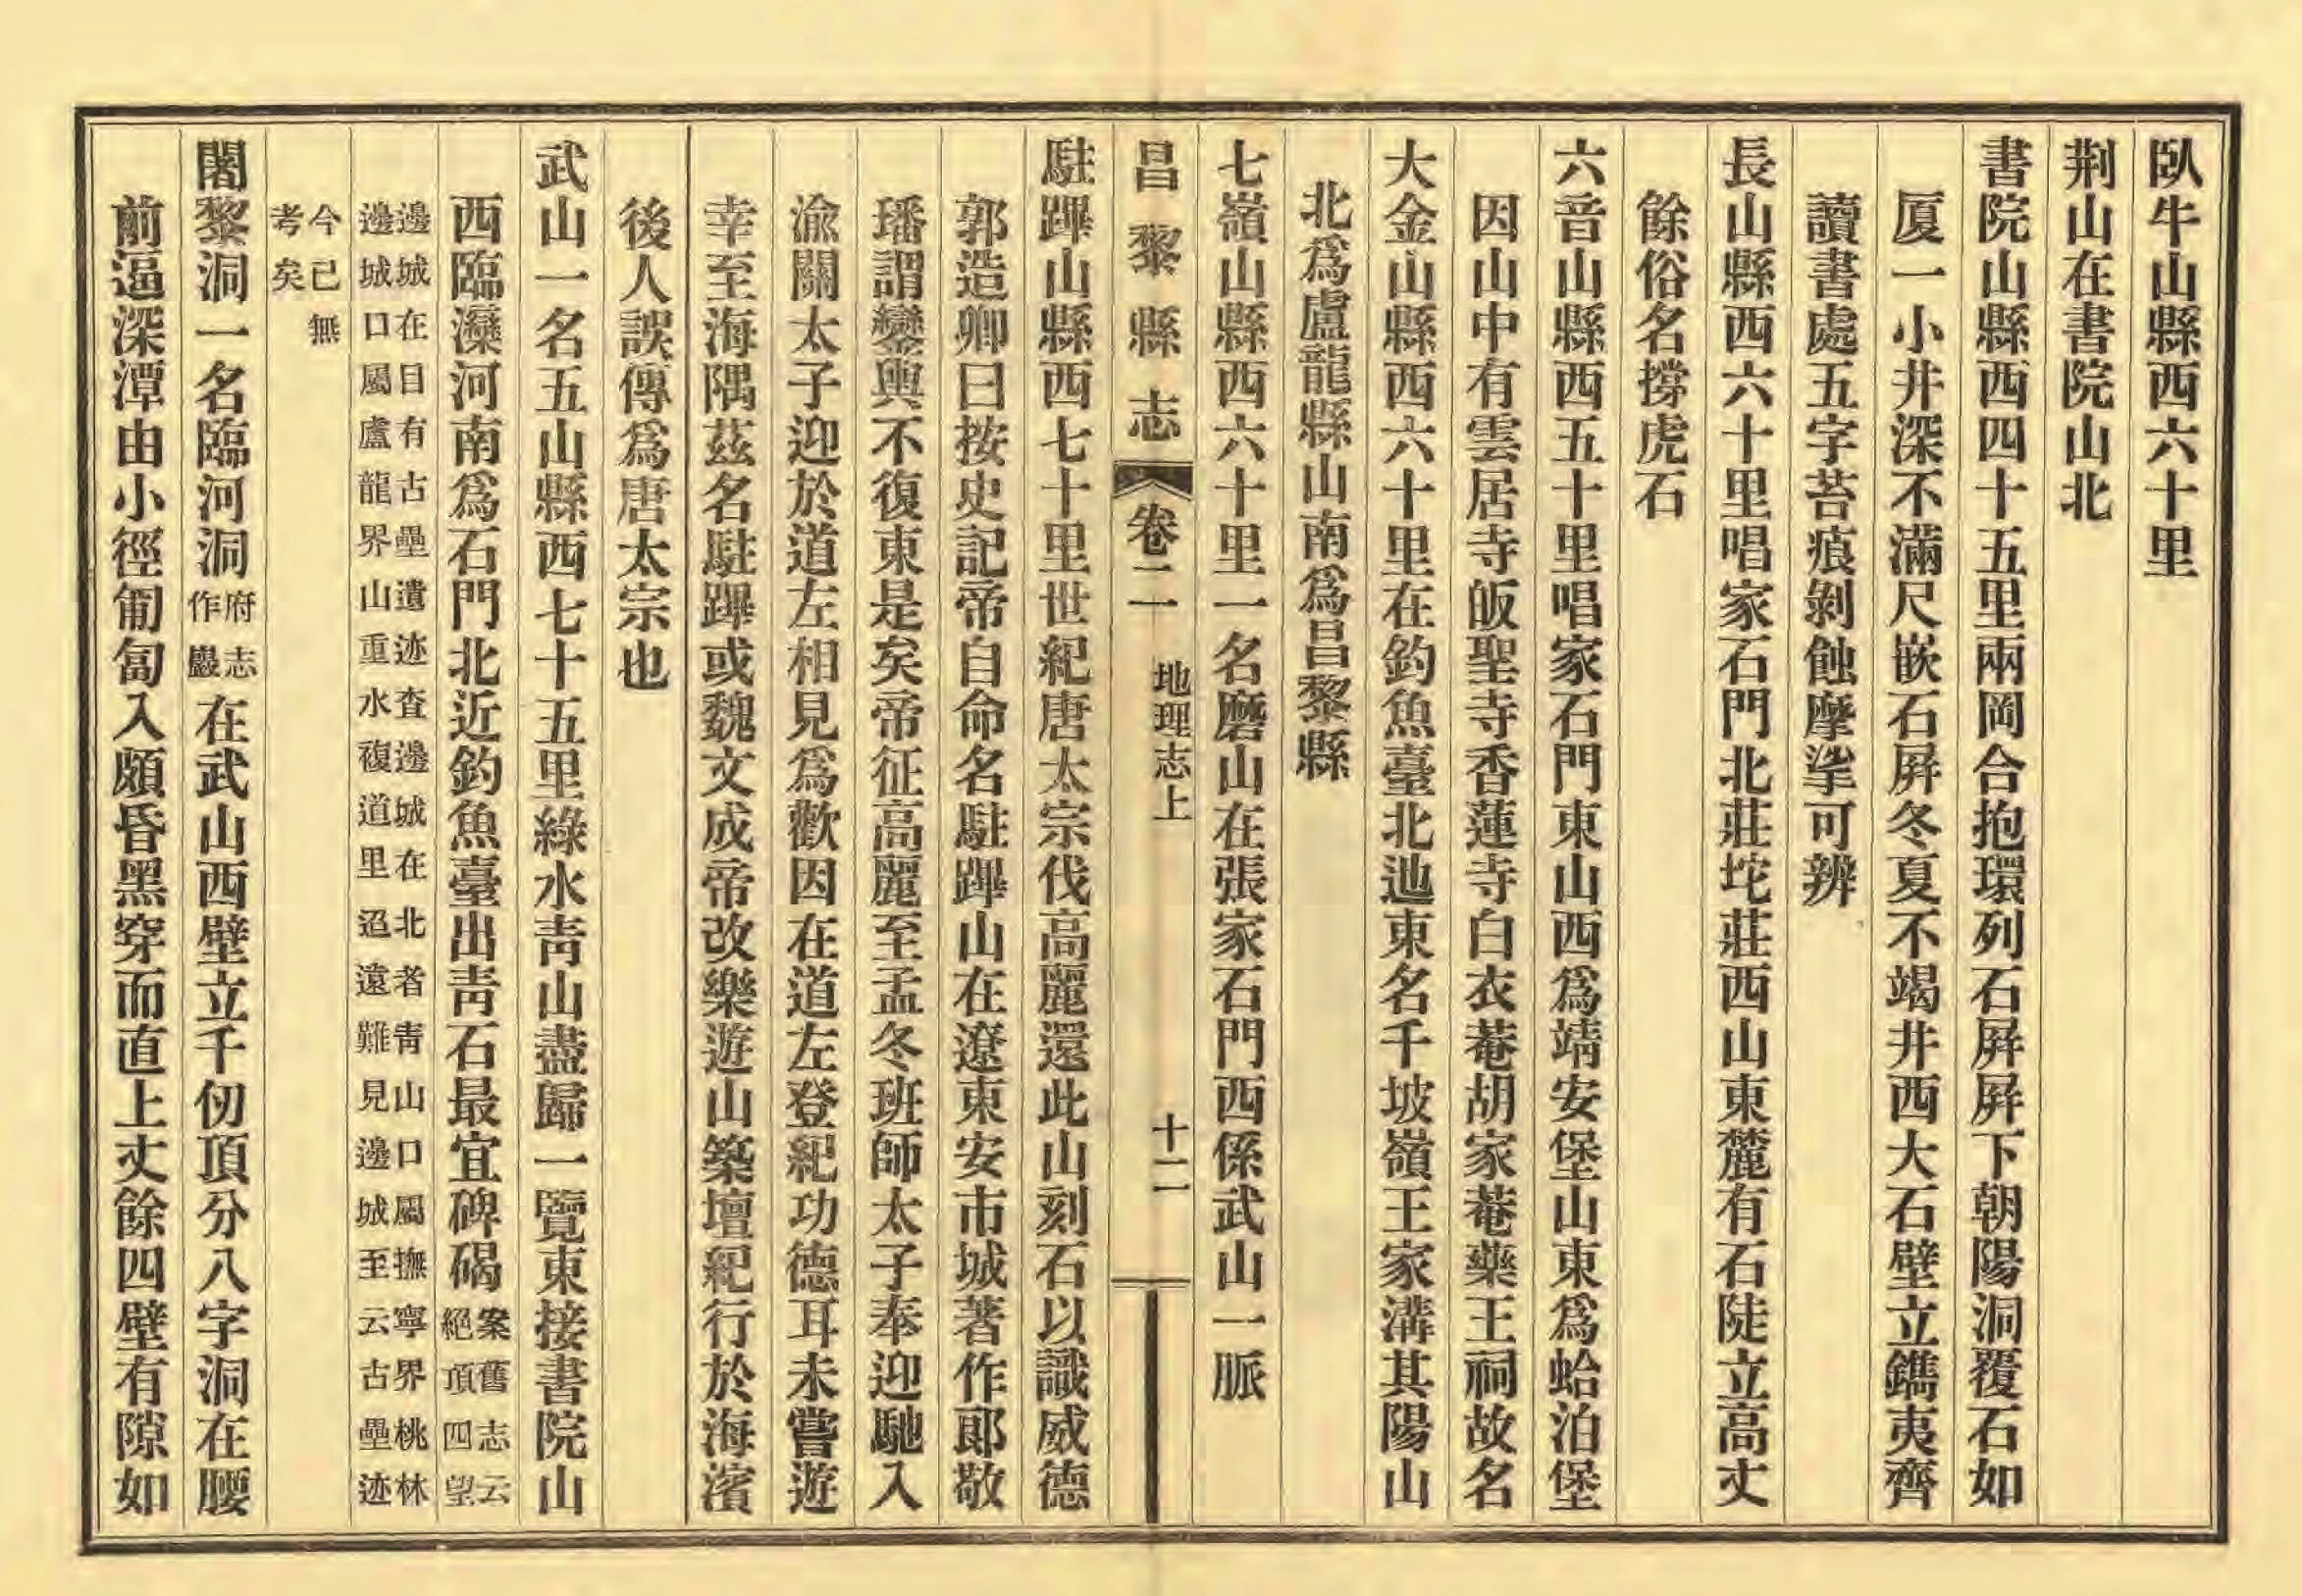 臥牛山縣西六十里
荆山在書院山北
書院山縣西四十五里兩岡合抱環列石屛屛下朝陽洞覆石如
厦一小井深不滿尺嵌石屛冬夏不竭井西大石壁立鐫夷齊
讀書處五字苔痕剝蝕摩挲可辨
長山縣西六十里唱家石門北莊坨莊西山東麓有石陡立高丈
餘俗名撐虎石
六音山縣西五十里唱家石門東山西爲靖安堡山東爲蛤泊堡
因山中有雲居寺皈聖寺香蓮寺白衣菴胡家菴藥王祠故名
大金山縣西六十里在釣魚臺北迆東名千坡嶺王家溝其陽山
北爲盧龍縣山南爲昌黎縣
七嶺山縣西六十里一名磨山在張家石門西係武山一脈
昌黎縣志 卷二 地理志上 十二
駐蹕山縣西七十里世紀唐太宗伐高麗還此山刻石以識威德
郭造卿曰按史記帝自命名駐蹕山在遼東安市城著作郎敬
璠謂鑾輿不復東是矣帝征高麗至孟冬班師太子奉迎馳入
渝關太子迎於道左相見爲歡因在道左登紀功德耳未嘗遊
幸至海隅茲名駐蹕或魏文成帝改樂遊山築壇紀行於海濱
後人誤傳爲唐太宗也
武山一名五山縣西七十五里綠水靑山盡歸一覽東接書院山
西臨灤河南爲石門北近釣魚臺出靑石最宜碑碣案舊志云絕頂四望
邊城在目有古壘遺迹查邊城在北者靑山口屬撫寧界桃林
邊城口屬盧龍界山重水複道里迢遠難見邊城至云古壘迹
今已無
考矣
闍黎洞一名臨河洞府志作巖在武山西壁立千仞頂分八字洞在腰
前逼深潭由小徑匍匐入頗昏黑穿而直上丈餘四壁有隙如